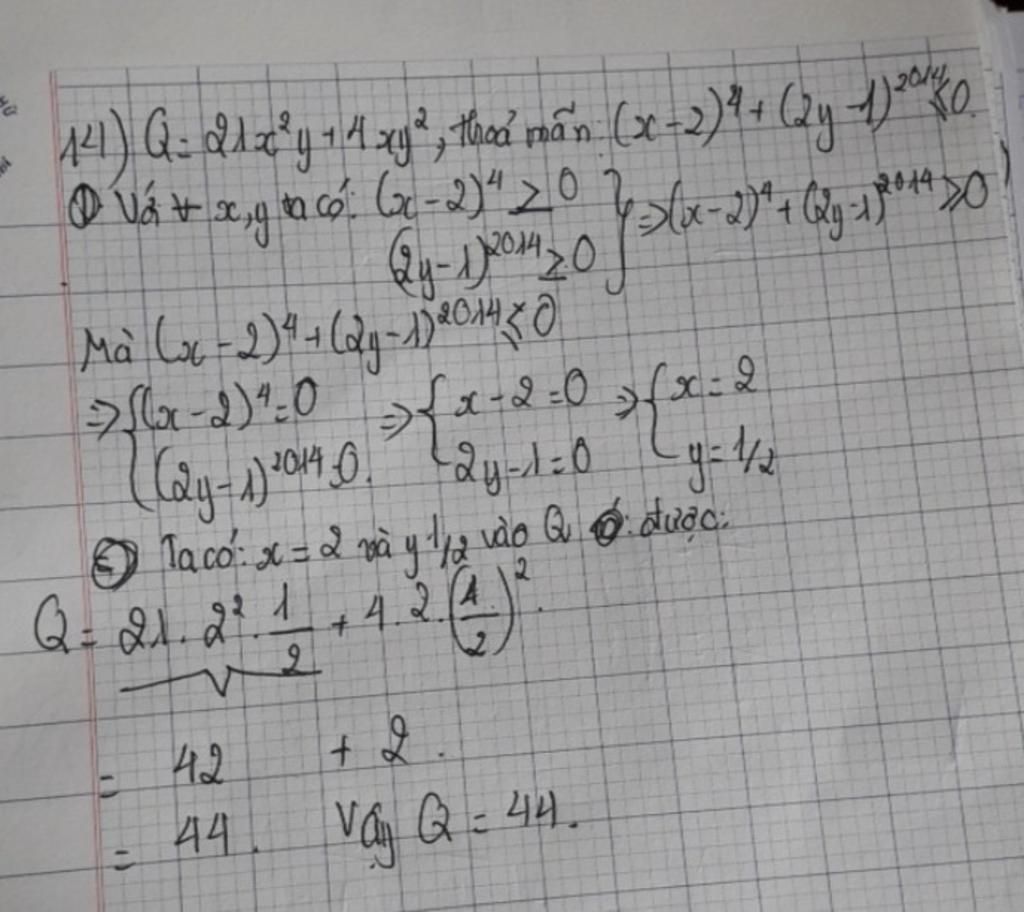 14) Q = 21x²y + 4xy², thoả mãn: (x-2)⁴ + (2y-1)²⁰¹⁴ ≤ 0.
① Với ∀ x,y ta có: (x-2)⁴ ≥ 0 } ⇒ (x-2)⁴ + (2y-1)²⁰¹⁴ ≥ 0
(2y-1)²⁰¹⁴ ≥ 0
Mà (x-2)⁴ + (2y-1)²⁰¹⁴ ≤ 0
⇒ { (x-2)⁴ = 0 ⇒ { x-2 = 0 ⇒ { x = 2
(2y-1)²⁰¹⁴ = 0. 2y-1 = 0 y = 1/2
② Ta có: x = 2 và y 1/2 vào Q : được:
Q = 21 . 2² . 1/2 + 4 . 2 . (1/2)² .
= 42 + 2 .
= 44 . Vậy Q = 44 .